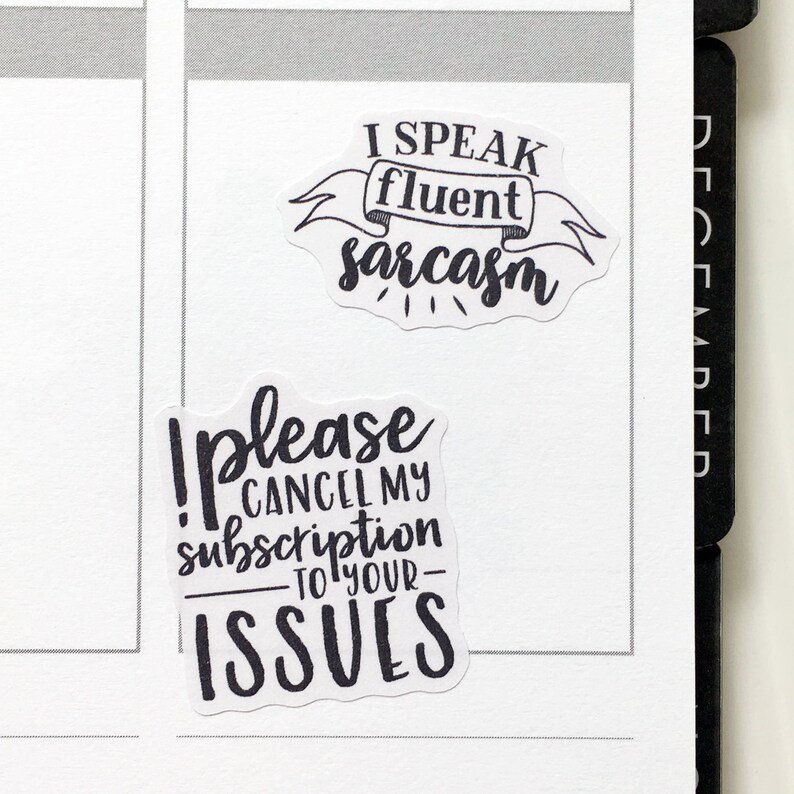 I SPEAK
fluent
sarcasm
!please
CANCEL MY
subscription
TO YOUR
ISSUES
DECEMBER